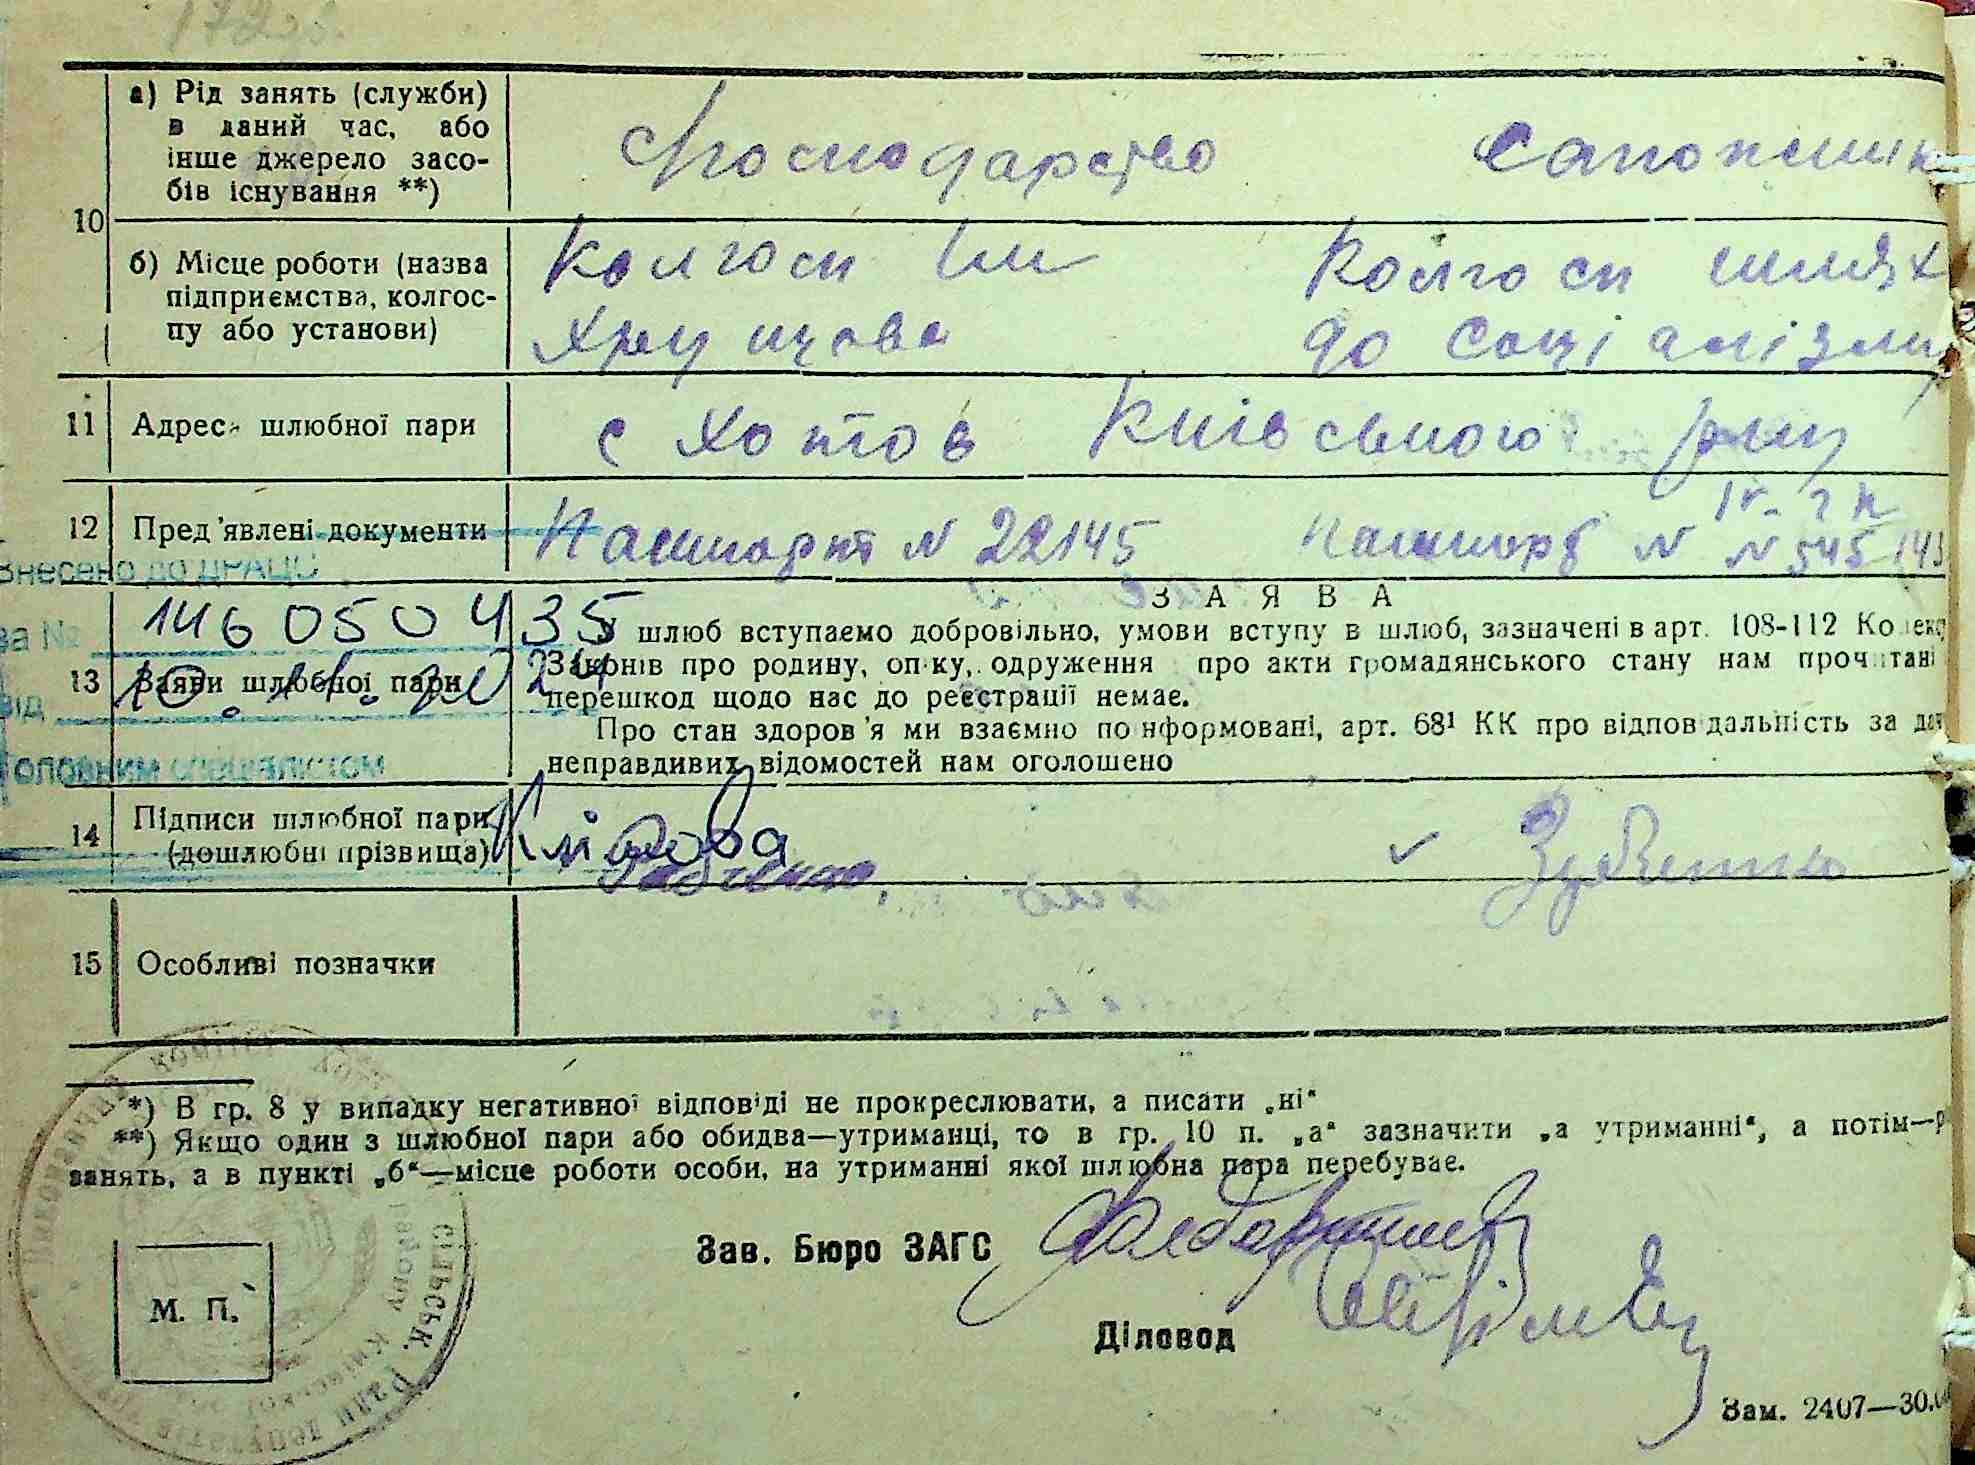 а) Рід занять (служби)
в даний час, або
інше джерело засо-
бів існування **)
Господарство
Сапожник
10
б) Місце роботи (назва
підприємства, колгос-
пу або установи)
Колгосп Ім
Хрущова
Колгосп шлях
до Соціалізму
11 Адреса шлюбної пари
с Хотов Київського р-ну
12 Пред'явлені документи
Пашпорт N 22145
Пашпорт N
N 545143
Внесено до ДРАЦС
за № 14605043 35
від 10.11.2024
Головним спеціалістом
13 Заяви шлюбної пари
ЗАЯВА
У шлюб вступаємо добровільно, умови вступу в шлюб, зазначені в арт. 108-112 Кодексу
Законів про родину, опіку, одруження про акти громадянського стану нам прочитані
перешкод щодо нас до реєстрації немає.
Про стан здоров'я ми взаємно поінформовані, арт. 68¹ КК про відповідальність за дач
неправдивих відомостей нам оголошено
14 Підписи шлюбної пари
(дошлюбні прізвища)
15 Особливі позначки
*) В гр. 8 у випадку негативної відповіді не прокреслювати, а писати „ні“
**) Якщо один з шлюбної пари або обидва—утриманці, то в гр. 10 п. „а“ зазначити „а утриманні“, а потім—р
занять, а в пункті „б“—місце роботи особи, на утриманні якої шлюбна пара перебуває.
Зав. Бюро ЗАГС
Діловод
М. П.
Зам. 2407—30.